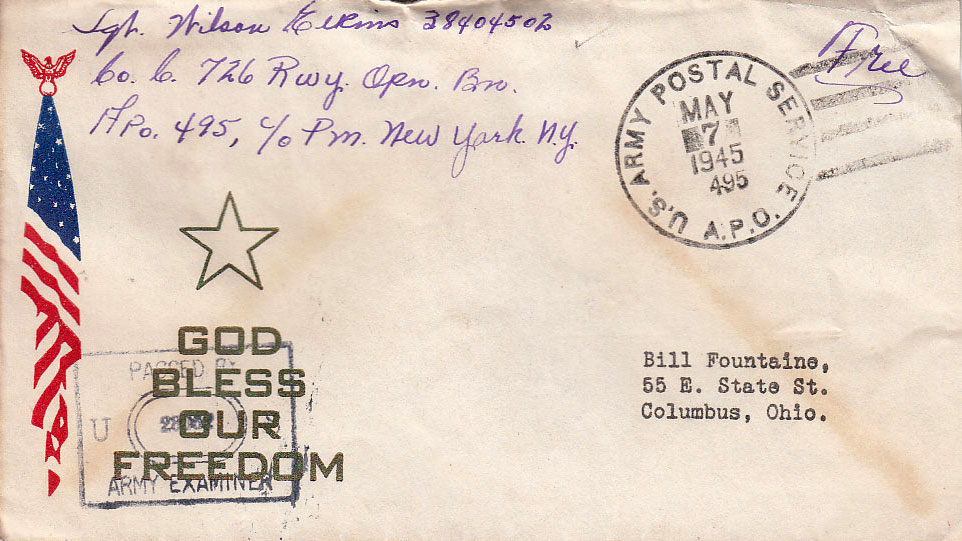 Sgt. Wilson Elkins 38404502
Co. C. 726 Rwy. Opn. Bn.
APO. 495, c/o Pm. New York. N.Y.
Free
U.S. ARMY POSTAL SERVICE
MAY
7
1945
495
A.P.O.
GOD
BLESS
OUR
FREEDOM
PASSED BY
U
ARMY EXAMINER
Bill Fountaine,
55 E. State St.
Columbus, Ohio.